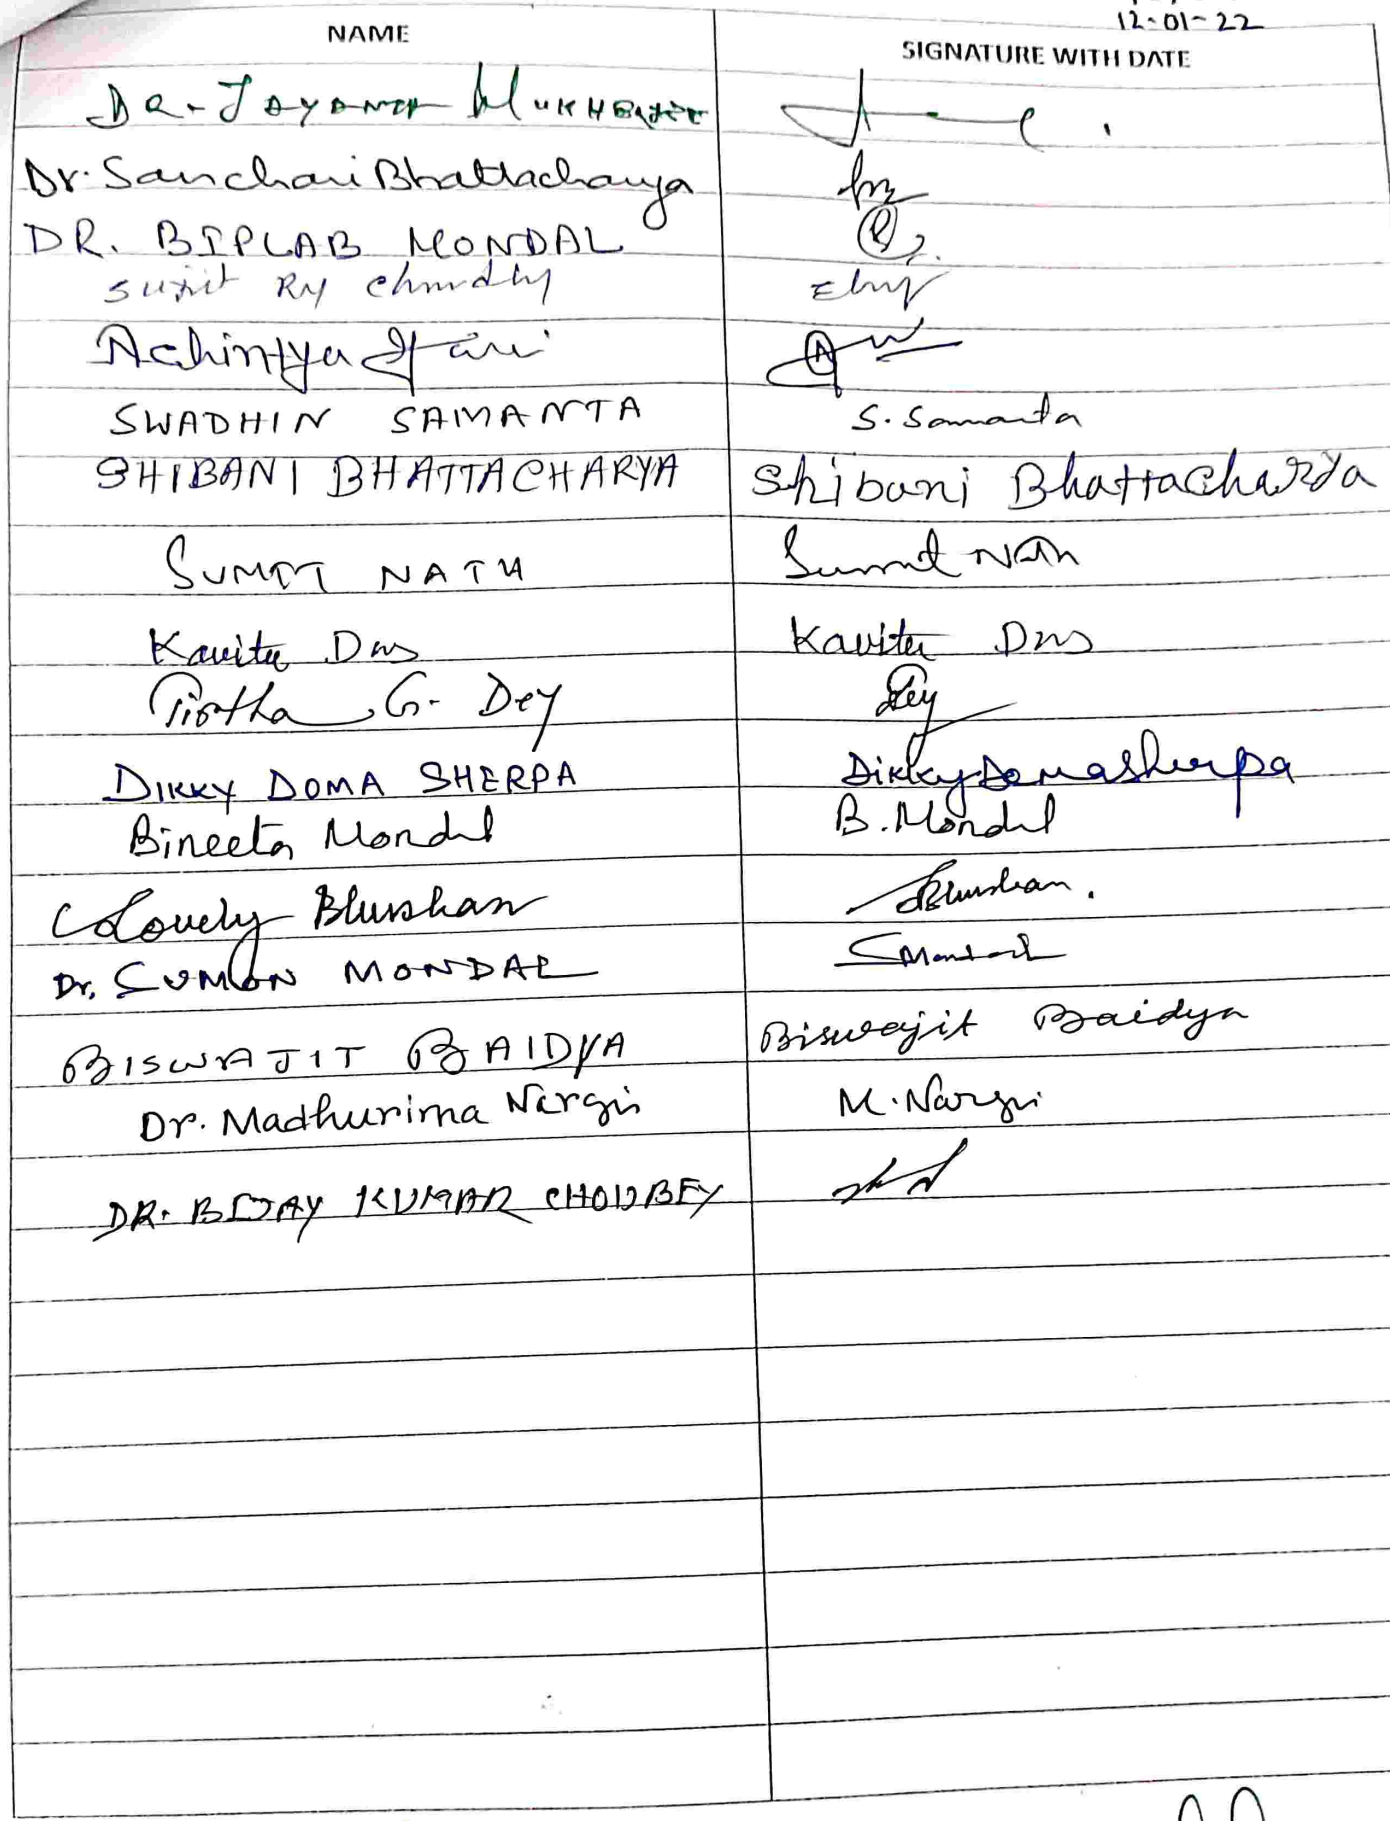 12-01-22
NAME SIGNATURE WITH DATE
DR. JAYANTA MUKHERJEE
Dr. Sanchari Bhattacharya
DR. BIPLAB MONDAL
Sujit Ry Chowdhy
Achintya
SWADHIN SAMANTA S. Samanta
SHIBANI BHATTACHARYA Shibani Bhattacharya
SUMIT NATH Sumit Nath
Kavita Das Kavita Das
G. Dey Dey
DIKKY DOMA SHERPA Dikky Doma Sherpa
Bineeta Mondal B. Mondal
Lovely Bhushan Bhushan.
Dr. SUMON MONDAL SMondal
BISWAJIT BAIDYA Biswajit Baidya
Dr. Madhurima Nargis M. Nargis
DR. BIJAY KUMAR CHOUBEY